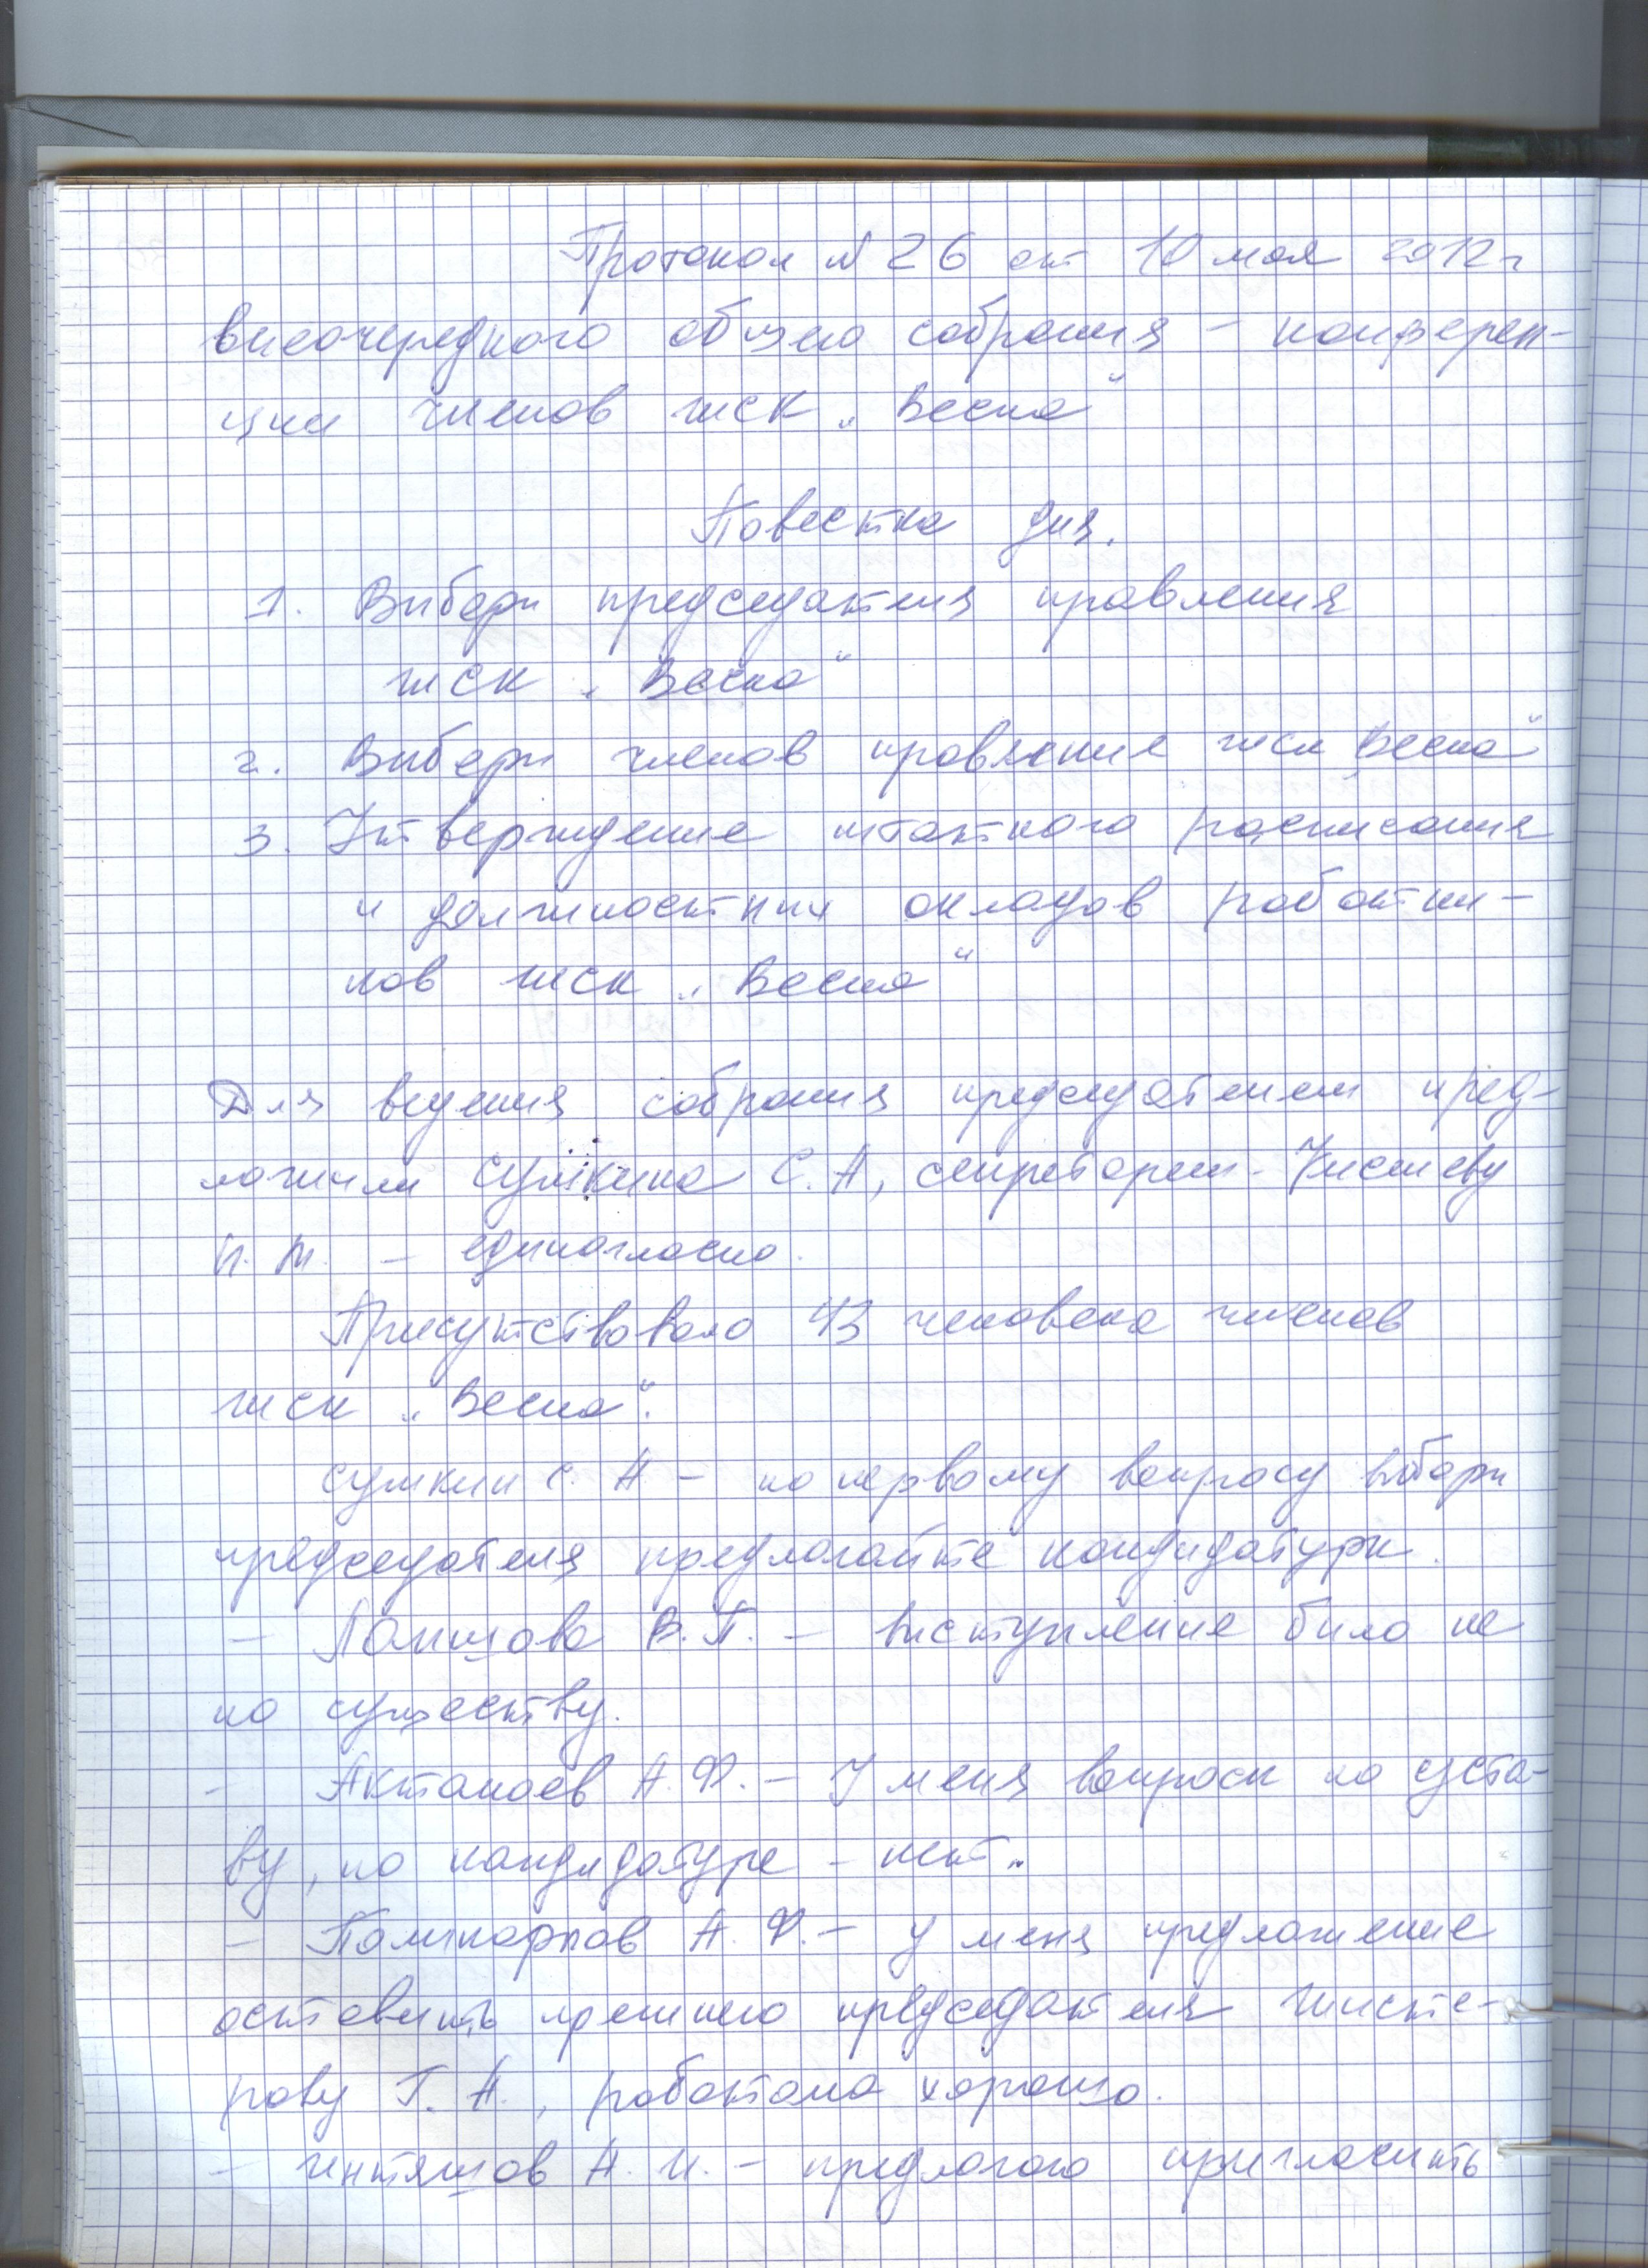 Протокол № 26 от 10 мая 2012 г
внеочередного общего собрания - конферен-
ции членов жск „Весна“
Повестка дня.
1. Выборы председателя правления
жск „Весна“
2. Выборы членов правления жск „Весна“
3. Утверждение штатного расписания
и должностных окладов работни-
ков жск „Весна“
Для ведения собрания председателем пред-
ложили Сушкина С. А, секретарем -
И. М. - единогласно.
Присутствовало 43 человека членов
жск „Весна“.
Сушкин С. А - по первому вопросу выборы
председателя предлагайте кандидатуры.
- Лопшова В. П. - выступление было не
по существу.
- Актанаев А. Ф. - У меня вопросы по уста-
ву, по кандидатуре - нет.
- Поликарпов А. Ф. - у меня предложение
оставить прежнего председателя
Г. А., работала хорошо.
- А. И. - предлагаю пригласить